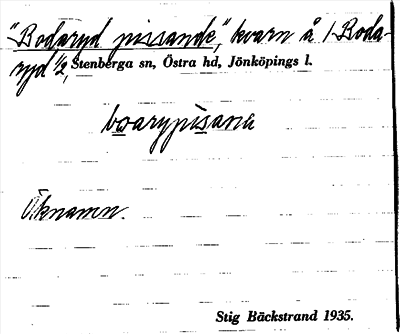 "Bodaryd pissande", kvarn å 1 Boda-
ryd ½, Stenberga sn, Östra hd, Jönköpings l.
boarypisana
Öknamn.
Stig Bäckstrand 1935.